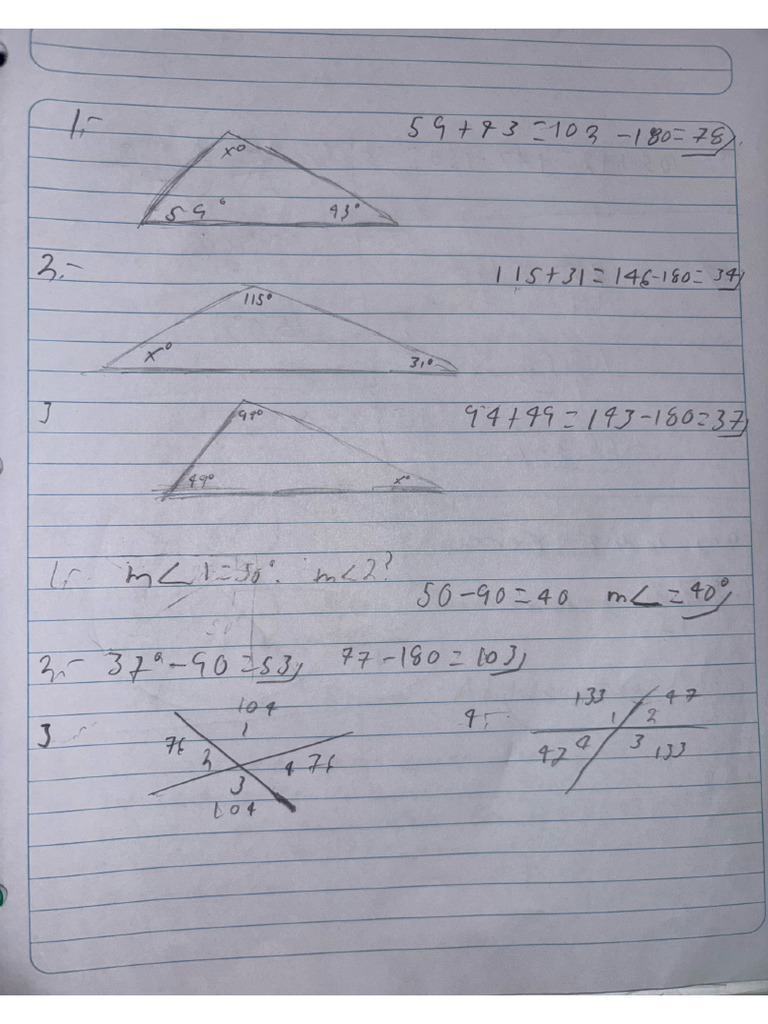 1.- 59+43=102 -180=78
x°
59° 43°
2.- 115+31=146-180=34
115°
x° 31°
3 94+49=143-180=37
94°
49° x°
1.- m∠1=50°. m∠2?
50-90=40 m∠=40°
2.- 37°-90=53, 77-180=103,
3- 104
1
76 2 4 76
3
104
4- 133 47
1 2
47 4 3 133